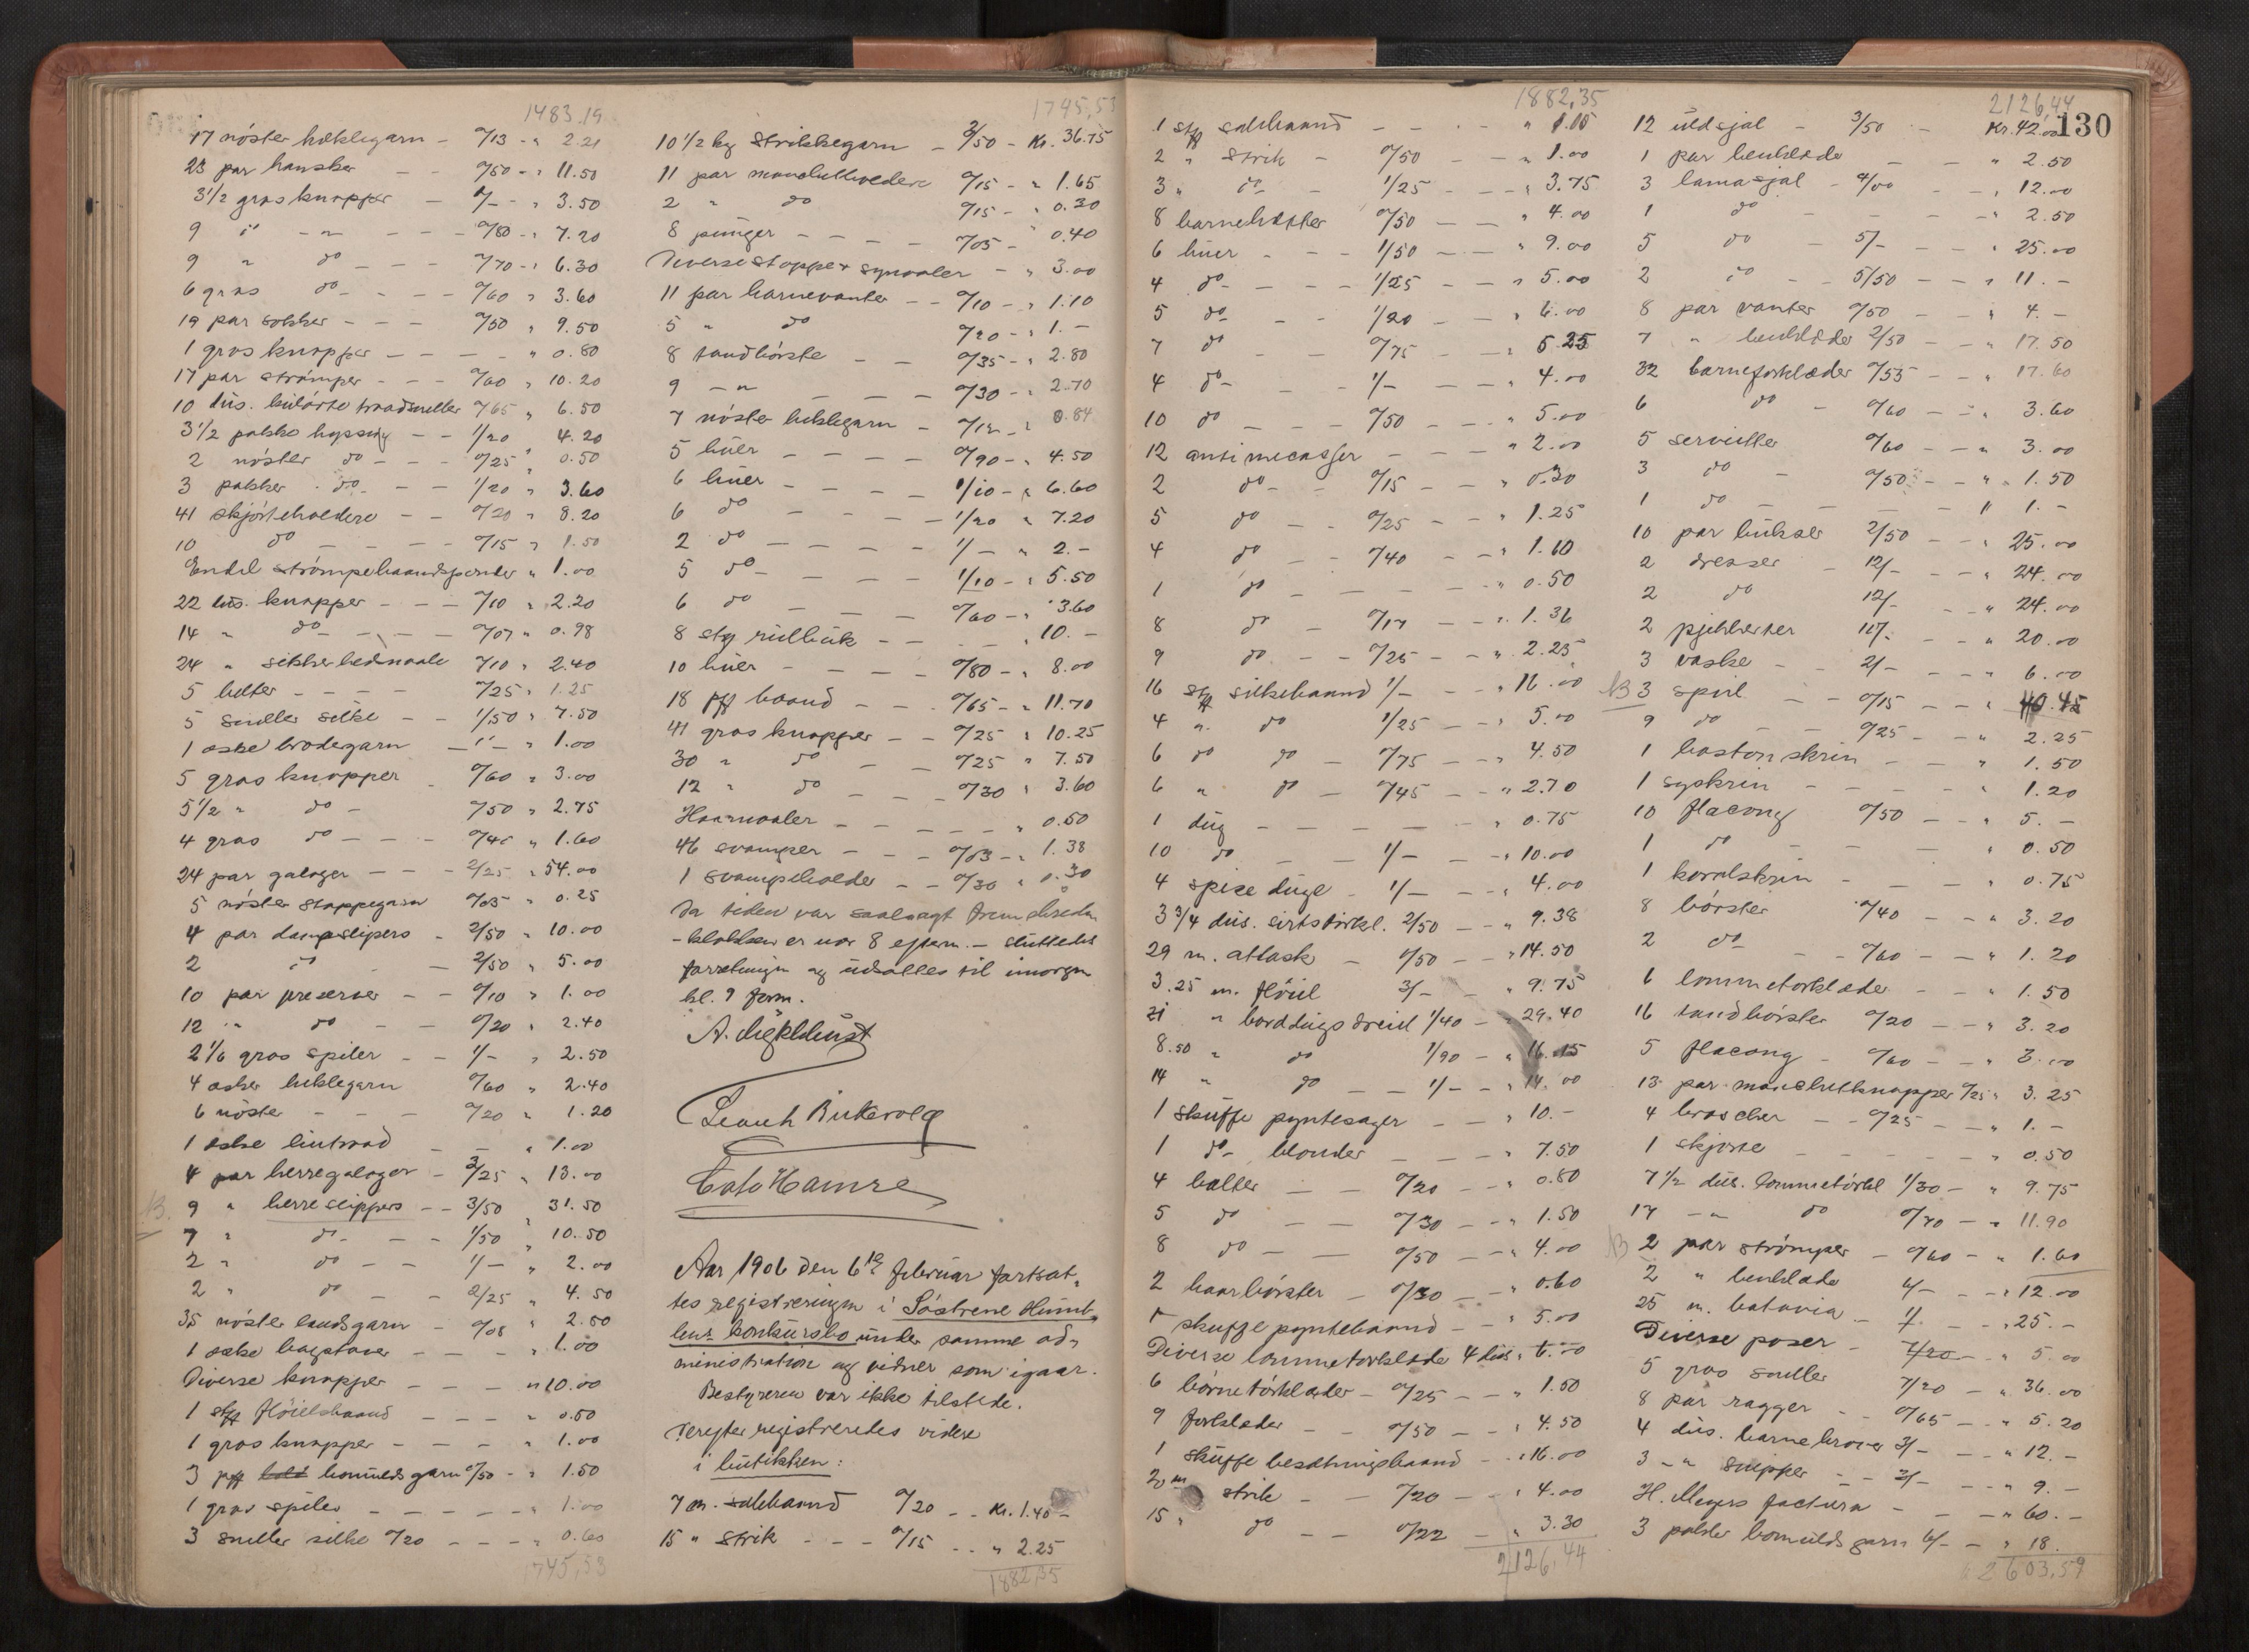 1483.19
17 nöster heklegarn - 0/13 - " 2.21
23 par hansker - - 0/50 - " 11.50
3 1/2 gros knapper - 1/- - " 3.50
9 " - " - - - 0/80 - " 7.20
9 " do - - - 0/70 - " 6.30
6 gros do - - - 0/60 " 3.60
19 par sokker - - - 0/50 " 9.50
1 gros knapper - - - - " 0.80
17 par strömper - - - 0/60 " 10.20
10 dus. kulörte traadsneller 0/65 " 6.50
3 1/2 pakke hyssing - - 1/20 " 4.20
2 nöster do - - - 0/25 " 0.50
3 pakker do - - - 1/20 " 3.60
41 skjörteholdere - - 0/20 " 8.20
10 do - - - - 0/15 " 1.50
Endel strömpebaandspender " 1.00
22 dus. knapper - - - 0/10 " 2.20
14 " do - - - 0/07 " 0.98
24 " sikkerhednaale 0/10 " 2.40
5 belter - - - - 0/25 " 1.25
5 sneller silke - - 1/50 " 7.50
1 æske brodegarn - " - " 1.00
5 gros knapper - 0/60 " 3.00
5 1/2 " do - 0/50 " 2.75
4 gros do - - - 0/40 " 1.60
24 par galoger - - - 2/25 " 54.00
5 nöster stoppegarn 0/05 " 0.25
4 par dampslipers - 2/50 " 10.00
2 " - 2/50 " 5.00
10 par preserver - - 0/10 " 1.00
12 " do - - 0/20 " 2.40
2 1/6 gros spiler - - 1/- " 2.50
4 æsker heklegarn 0/60 " 2.40
6 nöster - - - 0/20 " 1.20
1 æske lintraad - - " 1.00
4 par herregaloger - 3/25 " 13.00
NB. 9 " herreslippers - - 3/50 " 31.50
7 " do - - - 1/50 " 10.50
2 " do - - 1/- " 2.00
2 " do - - 2/25 " 4.50
35 nöster landsgarn - 0/08 " 2.80
1 æske bogstaver - - - " 1.00
Diverse knapper - - - " 10.00
1 stk flöielsbaand - - - " 0.50
1 gros knapper - - - - " 1.00
3 pk bomuldsgarn 0/50 - " 1.50
1 gros spiler - - - - - " 1.00
3 sneller silke 0/20 - - - " 0.60
1745,53
1745,53
10 1/2 kg strikkegarn - 3/50 - Kr. 36.75
11 par manchetholdere 0/15 - " 1.65
2 " do 0/15 - " 0.30
8 punger - - - - 0/05 - " 0.40
Diverse stoppe & synaaler - " 3.00
11 par barnevanter - - 0/10 - " 1.10
5 " do 0/20 - " 1. -
8 tandbörste - - 0/35 - " 2.80
9 - " - - - 0/30 - " 2.70
7 nöster heklegarn - 0/12 - " 0.84
5 huer - - - - 0/90 - " 4.50
6 huer - - - - 1/10 - " 6.60
6 do - - - - 1/20 " 7.20
2 do - - - - 1/- " 2. -
5 do - - - - 1/10 - " 5.50
6 do - - 0/60 - " 3.60
8 stk rulbuk - - - - " 10. -
10 huer - - - 0/80 - " 8.00
18 pk baand - - - 0/65 - " 11.70
41 gros knapper - - 0/25 " 10.25
30 " do - - 0/25 " 7.50
12 " do - - - 0/30 " 3.60
Haarnaaler - - - - - " 0.50
46 svamper - - - 0/03 - " 1.38
1 svampeholder - - 0/30 " 0.30
Da tiden var saalangt fremskreden
- klokken er nær 8 efterm. - sluttedes
forretningen og udsattes til imorgen
kl. 9 form.
Cato Hamre
Aar 1906 den 6te februar fortsat-
tes registreringen i Söstrene Humb-
lens konkursbo under samme ad-
ministration og vidner som igaar.
Bestyreren var ikke tilstede.
Derefter registreredes videre
i butikken:
7 m. silkbaand 0/20 - - Kr. 1.40 -
15 " strik - - - 0/15 - - " 2.25
1882,35
1882,35
1 stk silkbaand - - - - " 1.10
2 " strik - 0/50 - - " 1.00
3 " do - 1/25 - - - " 3.75
8 barnehætter 0/50 - - " 4.00
6 huer - - - 1/50 - - " 9.00
4 do - - - - 1/25 - - " 5.00
5 do - - - 1/20 - - " 6.00
7 do - - - 0/75 - - " 5.25
4 do - - - 1/- - - " 4.00
10 do - - - 0/50 - - " 5.00
12 antimecasser - - - " 2.00
2 do - - 0/15 - - " 0.30
5 do - - 0/25 - - " 1.25
4 do - - 0/40 - - " 1.60
1 do - - - - - " 0.50
8 do - 0/17 - - " 1.36
9 do - - 0/25 - - " 2.25
16 stk silkebaand 1/- - " 16.00
4 " do 1/25 - - " 5.00
6 do do - 0/75 - - " 4.50
6 " do - 0/45 - - " 2.70
1 dug - - - - - - " 0.75
10 do - - 1/- - - " 10.00
4 spise duge - 1/- - - " 4.00
3 3/4 dus. sirtstörkl. 2/50 - - " 9.38
29 m. atlask - 0/50 - - " 14.50
3.25 m. flöiel 3/- - " 9.75
21 " borddugsdreiel 1/40 - " 29.40
8.50 " do 1/90 - " 16.15
14 " do - - 1/- - " 14.00
1 skuffe pyntesager - - " 10. -
1 do blonder - - - " 7.50
4 belter - - 0/20 - - " 0.80
5 do - - 0/30 - - " 1.50
8 do - - 0/50 - - " 4.00
2 haarbörster - 0/30 - - " 0.60
1 skuffe pyntebaand - - " 5.00
Diverse lommetorklæde 4 dus. " 6.00
6 börnetörklæder - 0/25 - - " 1.50
9 forklæder - - 0/50 - - " 4.50
1 skuffe besætningsbaand - " 16.00
20 m strik - - 0/20 - - " 4.00
15 " do - - 0/22 - " 3.30
2126,44
2126,44
130
12 uldsjal - 3/50 - Kr. 42.00
1 par benklæde - - " 2.50
3 lamasjal - 4/00 - - " 12.00
1 do - - - - " 2.50
5 do - 5/- - - " 25.00
2 do - - 5/50 - - " 11. -
8 par vanter 0/50 - - " 4. -
7 " benklæder 2/50 - - " 17.50
32 barneforklæder 0/55 - - " 17.60
6 do - 0/60 - - " 3.60
5 servietter 0/60 - - " 3.00
3 do - 0/50 - - " 1.50
1 do - - - " 1. -
10 par bukser 2/50 - - " 25.00
2 dresser - 12/- - - " 24.00
2 do 12/- - - " 24.00
2 pjekkerter 10/- - " 20.00
3 vaske - - 2/- - " 6.00
NB 3 speil - - 0/15 - - " 0.45
9 do - - 0/25 - - " 2.25
1 boston skrin - - " 1.50
1 syskrin - - - - " 1.20
10 flacong 0/50 - - " 5. -
1 do - - - " 0.50
1 koralskrin - - - " 0.75
8 börster 0/40 - - " 3.20
2 do - - 0/60 - - " 1.20
6 lommetorklæde - - " 1.50
16 tandbörster 0/20 - - " 3.20
5 flacong - 0/60 - - " 3.00
13 par manchetknapper 0/25 " 3.25
4 broscher - - 0/25 - - " 1. -
1 skjorte - - - - " 0.50
7 1/2 dus. lommetörkl 1/30 - " 9.75
17 - " do 0/70 - " 11.90
NB 2 par strömper - 0/60 - " 1.60
2 " benklæde 6/- - " 12.00
25 m. batavia - 1/- - " 25. -
Diverse poser - - " 5.00
5 gros sneller 7/20 - " 36.00
8 par ragger - - 0/65 - " 5.20
4 dus. barnekraver 3/- - - " 12. -
3 - " snipper - - 3/- - - " 9. -
H. Meyers factura - - - " 60. -
3 pakker bomuldsgarn 6/- - " 18.
2603.59